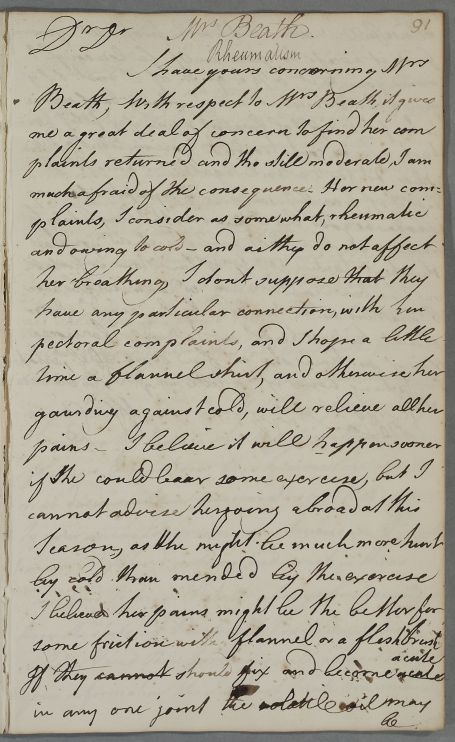 Mrs Beath. 91
Dr Dr
Rheumatism
I have yours concerning Mrs
Beath, With respect to Mrs Beath, it gives
me a great deal of concern to find her com
plaints returned and tho still moderate, I am
much afraid of the consequence. Her new com=
plaints, I consider as somewhat, rheumatic
and owing to cold - and as they do not affect
her breathing, I dont suppose that they
have any particular connection, with her
pectoral complaints, and I hope a little
time a flannel shirt, and otherwise her
gaurding against cold, will relieve all her
pains - I believe it will happen sooner
if she could bear some exercise, but I
cannot advise her going abroad at this
Season, as she might be much more hurt
by cold than mended by the exercise
I believe her pains might be the better for
some friction with flannel or a flesh brush
acute
If they cannot should fix and become acute
in any one joint the volatile oil may
be